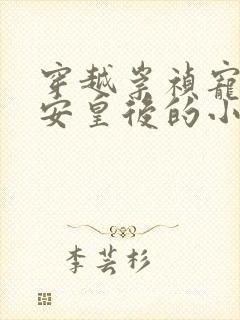 穿越崇禎寵
安皇後的小
李芸杉